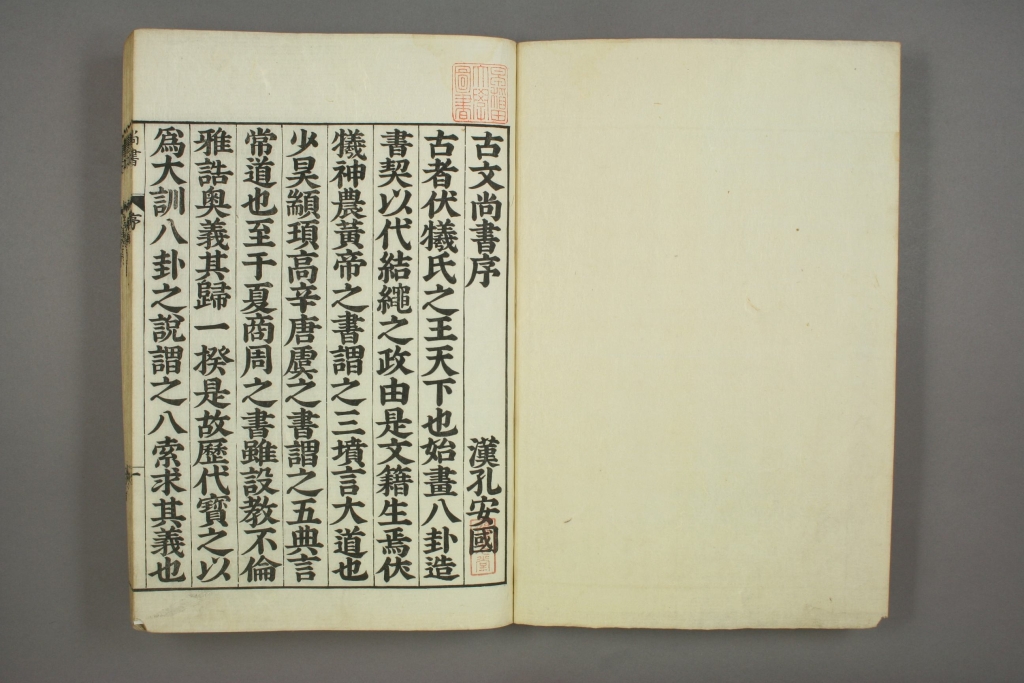 古文尚書序 漢孔安國
古者伏犧氏之王天下也始畫八卦造
書契以代結繩之政由是文籍生焉伏
犧神農黃帝之書謂之三墳言大道也
少昊顓頊高辛唐虞之書謂之五典言
常道也至于夏商周之書雖設教不倫
雅誥奧義其歸一揆是故歷代寶之以
爲大訓八卦之說謂之八索求其義也
尚書 序